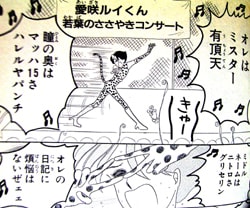 愛咲ルイくん
若葉のささやきコンサート
オレは
ミスター
有頂天
瞳の奥は
マッハ15さ
ハレルヤパンチ
きゃー
ミドル
ネームは
ニトロさ
グリセリン
オレの
日記に
煩悩は
ないぜェェ